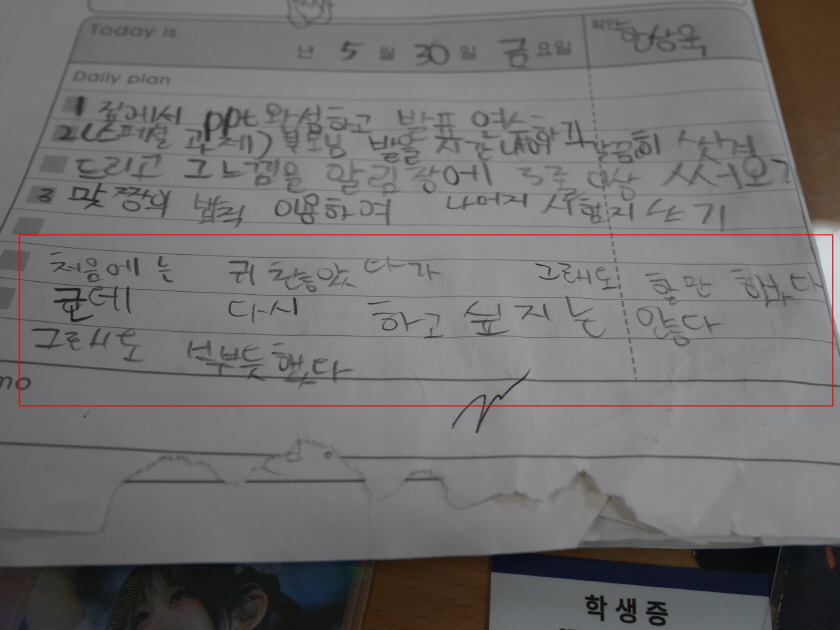 Today is
년 5 월 30 일 금 요일
Daily plan
1 집에서 ppt 완성하고 발표 연습하기
2 (스페셜 과제) 부모님 발을 시간 내어 깔끔히 씻겨
드리고 그 느낌을 알림장에 3줄 이상 써오기
3 맞짱의 법칙 이용하여 나머지 시험지 쓰기
처음에는 귀찮았다가 그래도 할만 했다
군데 다시 하고 싶지는 않다
그래도 뿌듯했다
mo
학생증